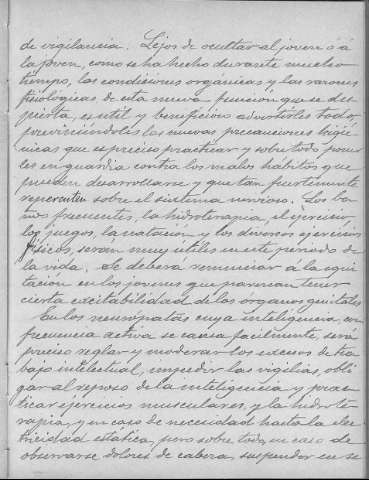 de vigilancia. Lejos de ocultar al joven ó á
la joven, como se ha hecho durante mucho
tiempo, las condiciones orgánicas y las razones
fisiológicas de esta nueva función que se des-
pierta, es util y beneficioso advertirles todo,
previniéndoles las nuevas precauciones higié-
nicas que es preciso practicar y sobre todo poner
les en guardia contra los malos hábitos que
pueden desarrollarse y que tan fuertemente
repercuten sobre el sistema nervioso. Los ba-
ños frecuentes, la hidroterapia, el ejercicio,
los juegos, la natación y los diversos ejercicios
físicos, serán muy útiles en este periodo de
la vida. Se deberá renunciar á la equi-
tación en los jóvenes que parezcan tener
cierta excitabilidad de los órganos genitales
En los neurópatas cuya inteligencia, con
frecuencia activa se cansa facilmente, será
preciso reglar y moderar los excesos de tra-
bajo intelectual, impedir las vigilias, obli-
gar al reposo de la inteligencia y prac-
ticar ejercicios musculares, y la hidrote-
rapia, y en caso de necesidad hasta la elec-
tricidad estática, pero sobre todo, en caso de
observarse dolores de cabeza, suspender en se